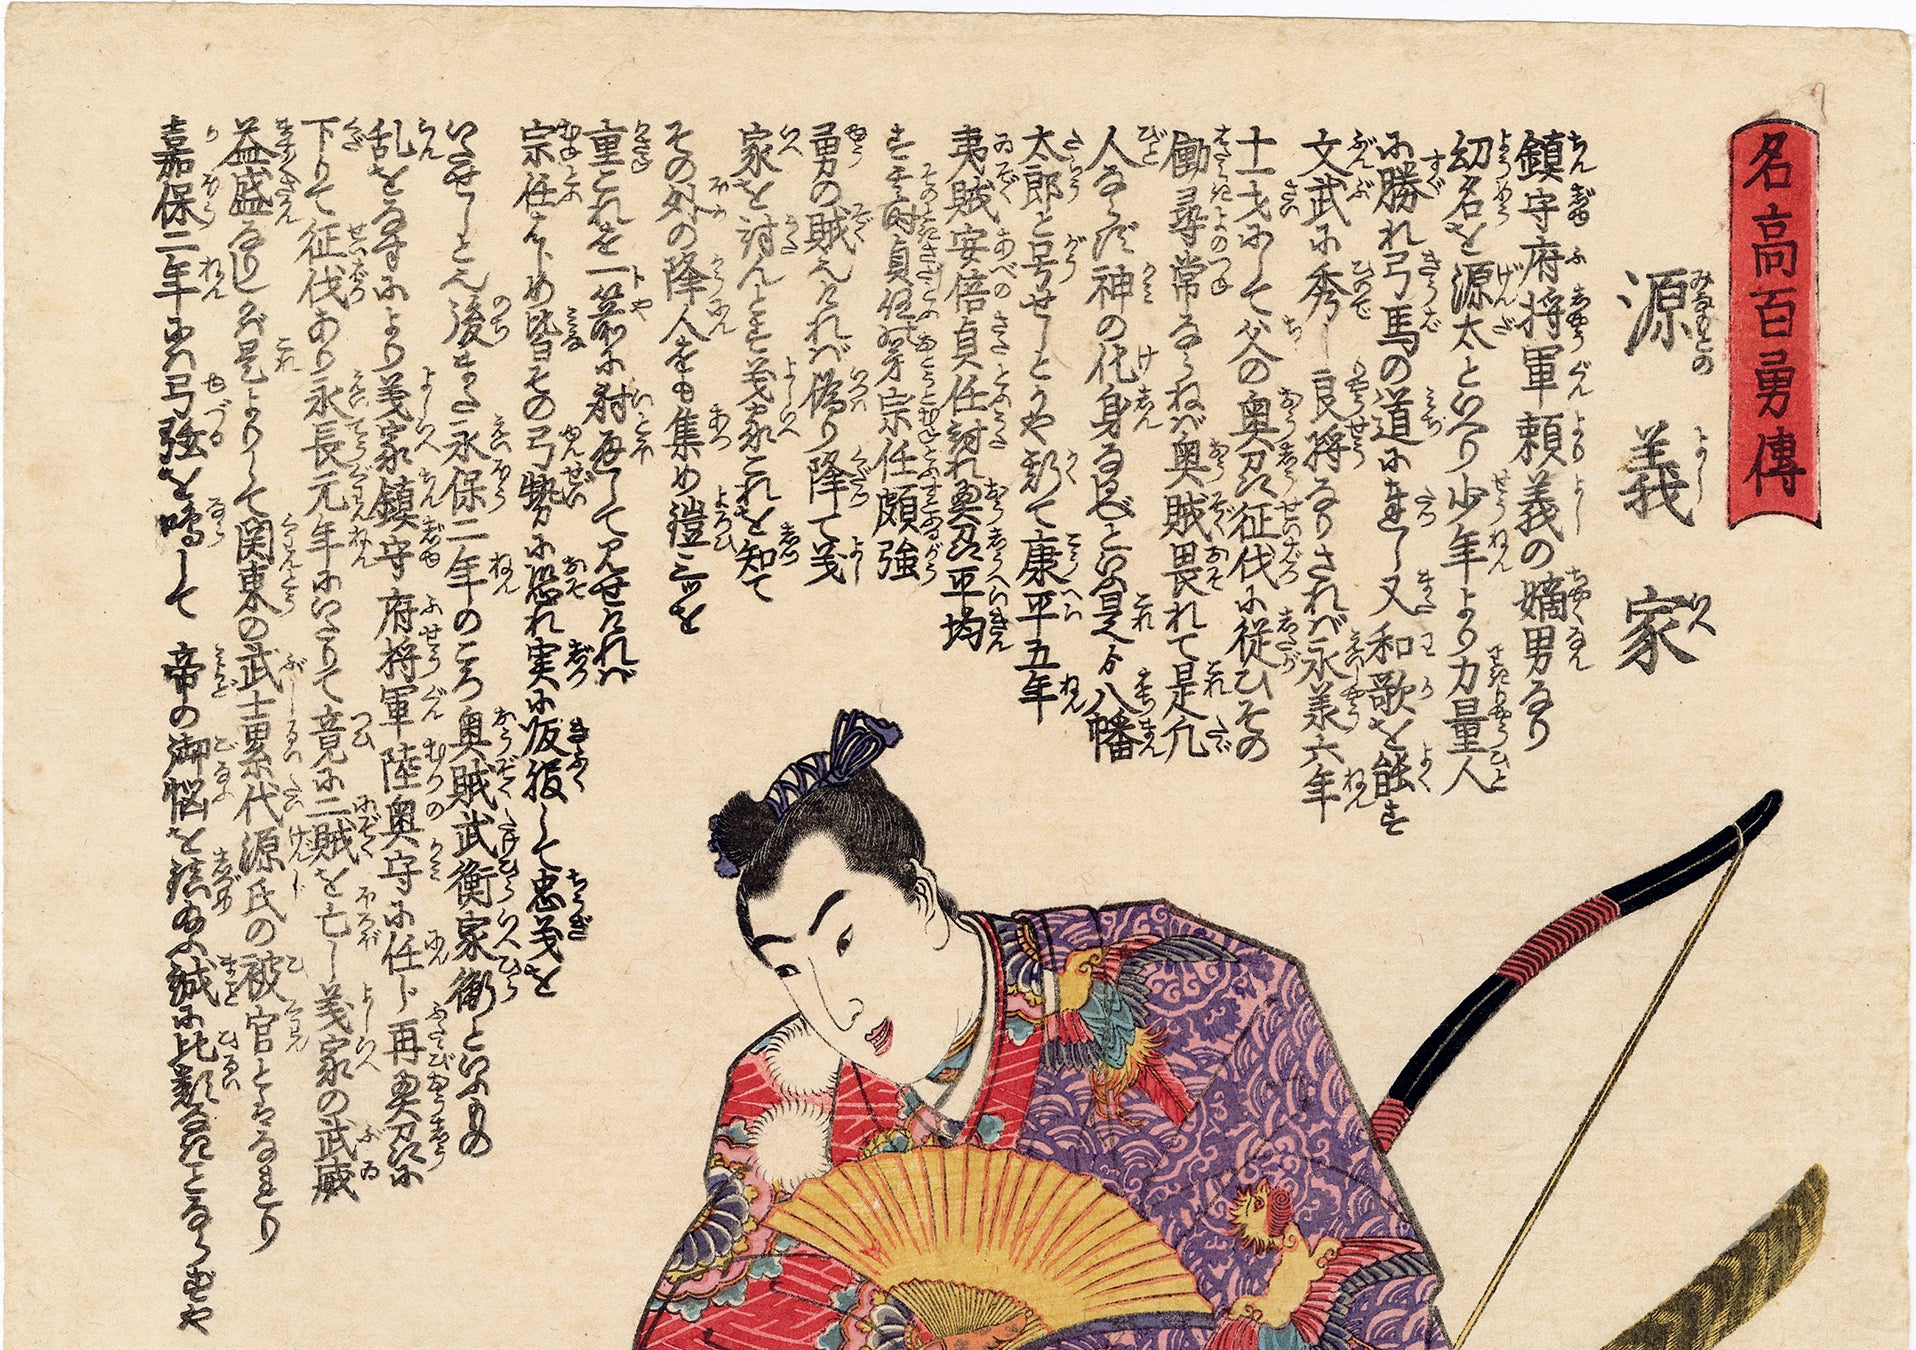 名高百勇傳
源義家
鎮守府将軍頼義の嫡男なり
幼名を源太といへり少年より力量人
に勝れ弓馬の道に達し又和歌を能す
文武に秀し良将なりされバ永義六年
十一才にして父の奥刕征伐に従ひその
働尋常ならねバ奥賊畏れて是凡
人ならず神の化身なるべしといふ是より八幡
太郎と号せしとうや斯て康平五年
夷賊安倍貞任討れ奥刕平均
す其時貞任が弟宗任頗強
勇の賊なけれバ偽り降て義
家を討んとす義家これを知て
その外の降人をも集め鎧三ツを
重これを一箭に射通して見せけれバ
宗任を始め皆その弓勢に恐れ実に帰服して忠義を
いたせしとぞ後また永保二年のころ奥賊武衡家衡といふもの
乱をなすにより義家鎮守府将軍陸奥守に任じ再奥刕に
下りて征伐あり永長元年にいたりて竟に二賊を亡し義家の武威
益盛なりしが是よりして関東の武士累代源氏の被官とはなれり
嘉保二年にハ弓弦を鳴して帝の御悩を鎮め給ふ誠に比類なきことならずや